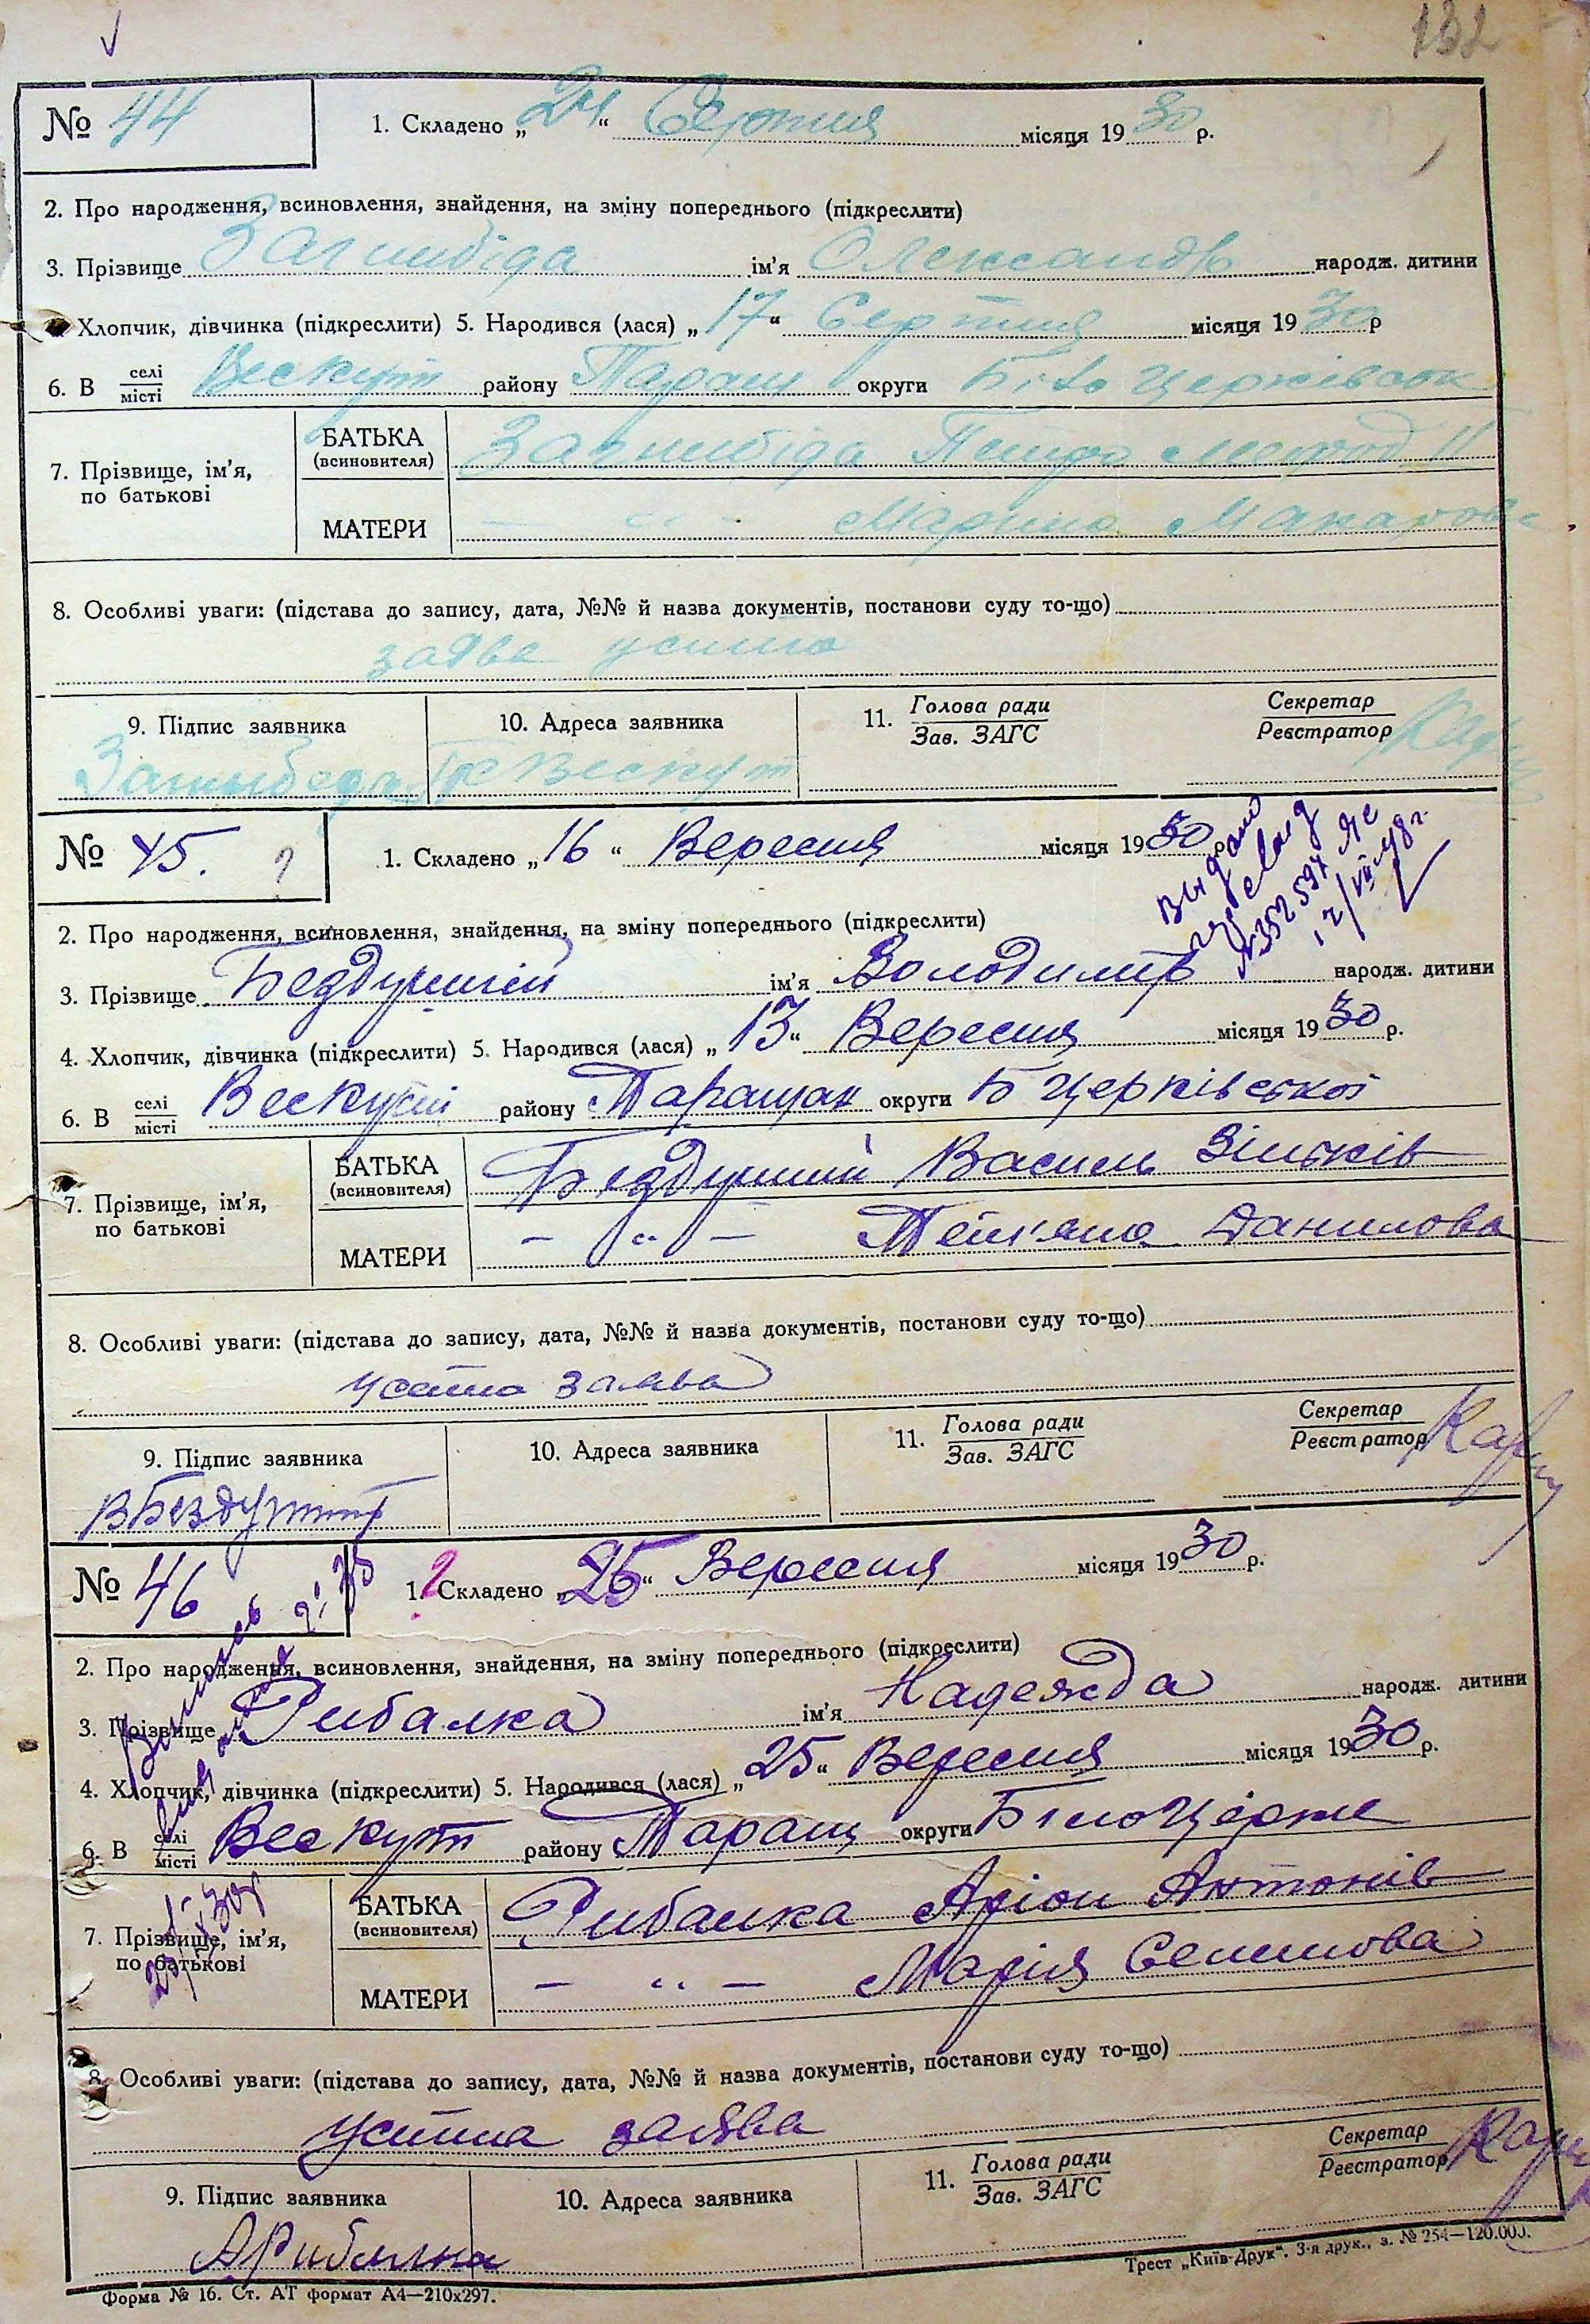 132
№ 44
1. Складено „24“ Серпня місяця 1930 р.
2. Про народження, всиновлення, знайдення, на зміну попереднього (підкреслити)
3. Прізвище Загнибіда ім'я Олександр народж. дитини
Хлопчик, дівчинка (підкреслити) 5. Народився (лася) „17“ Серпня місяця 1930 р
6. В селі/місті Вескут району Таращ округи Біло Церківськ
7. Прізвище, ім'я, по батькові
БАТЬКА (всиновителя) Загнибіда Петро
МАТЕРИ — “ — Марина Макаров
8. Особливі уваги: (підстава до запису, дата, №№ й назва документів, постанови суду то-що)
заява усна
9. Підпис заявника 10. Адреса заявника 11. Голова ради/Зав. ЗАГС Секретар/Реєстратор
Вескут
№ 45. ?
1. Складено „16“ Вересня місяця 1930 р
Выдано
№352597
2. Про народження, всиновлення, знайдення, на зміну попереднього (підкреслити)
3. Прізвище Бездушній ім'я Володимир народж. дитини
4. Хлопчик, дівчинка (підкреслити) 5. Народився (лася) „13“ Вересня місяця 1930 р.
6. В селі/місті Вескуті району Таращан округи Б Церківської
7. Прізвище, ім'я, по батькові
БАТЬКА (всиновителя) Бездушний Василь Зіньків
МАТЕРИ — “ — Тетяна Данилова
8. Особливі уваги: (підстава до запису, дата, №№ й назва документів, постанови суду то-що)
Устна заява
9. Підпис заявника 10. Адреса заявника 11. Голова ради/Зав. ЗАГС Секретар/Реєстратор
№ 46
1. Складено „25“ Вересня місяця 1930 р.
2. Про народження, всиновлення, знайдення, на зміну попереднього (підкреслити)
3. Прізвище Рибалка ім'я Надежда народж. дитини
4. Хлопчик, дівчинка (підкреслити) 5. Народився (лася) „25“ Вересня місяця 1930 р.
6. В селі/місті Вескут району Таращ округи Білоцерке
7. Прізвище, ім'я, по батькові
БАТЬКА (всиновителя) Рибалка Аріон Антонів
МАТЕРИ — “ — Марія Семенова
8. Особливі уваги: (підстава до запису, дата, №№ й назва документів, постанови суду то-що)
Устна заява
9. Підпис заявника 10. Адреса заявника 11. Голова ради/Зав. ЗАГС Секретар/Реєстратор
А Рибалка
Форма № 16. Ст. АТ формат А4—210x297.
Трест „Київ-Друк“. 3-я друк., з. № 254—120.000.